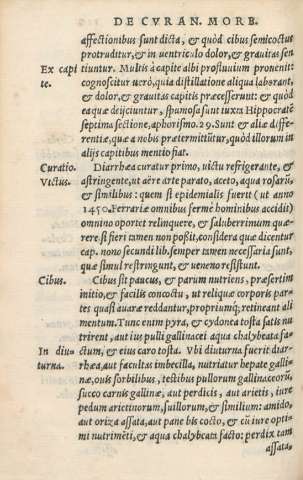 DE CVRAN. MORB.
affectionibus sunt dicta, & quòd cibus semicoctus
protruditur, & in uentriculo dolor, & grauitas sen
Ex capi tiuntur. Multis à capite albi profluuium prouenit
te. cognoscitur uerò, quia distillatione aliqua laborant,
& dolor, & grauitas capitis præcesserunt: & quòd
ea quæ deijciuntur, spumosa sunt iuxta Hippocratē
septima sectione, aphorismo. 29. Sunt & aliæ diffe-
rentiæ, quæ a nobis prætermittũtur, quòd illorum in
alijs capitibus mentio fiat.
Curatio. Diarrhœa curatur primo, uictu refrigerante, &
Victus. astringente, ut aëre arte parato, aceto, aqua rosarũ,
& similibus: quem si epidemialis fuerit (ut anno
1450. Ferrariæ omnibus fermè hominibus accidit)
omnino oportet relinquere, & saluberrimum quæ-
rere. si fieri tamen non possit, considera quæ dicentur
cap. nono secundi lib. semper tamen necessaria sunt,
quæ simul restringunt, & ueneno resistunt.
Cibus. Cibus sit paucus, & parum nutriens, præsertim
initio, & facilis concoctu, ut reliquæ corporis par-
tes quasi auaræ reddantur, propriumq; retineant ali
mentum. Tunc enim pyra, & cydonea tosta satis nu
trirent, aut ius pulli gallinacei aqua chalybeata fa-
In diu ctum, & eius caro tosta. Vbi diuturna fuerit diar-
turna. rhœa, aut facultas imbecilla, nutriatur hepate galli-
næ, ouis sorbilibus, testibus pullorum gallinaceorũ,
succo carnis gallinæ, aut perdicis, aut arietis, iure
pedum arietinorum, suillorum, & similium: amido,
aut oriza assata, aut pane bis cocto, & cũ iure opti-
mi nutrimēti, & aqua chalybeata facto: perdix tam
assata,